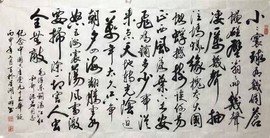 小小寰球有几个苍蝇
碰壁嗡嗡叫几声
凄厉几声抽
泣蚂蚁缘槐夸大国
蚍蜉撼树谈何易
正西风落叶下长安
飞鸣镝多少事从
来急天地转光阴
迫一万年太久只争
朝夕四海翻腾云水
怒五洲震荡风雷激
要扫除一切害人虫
全无敌